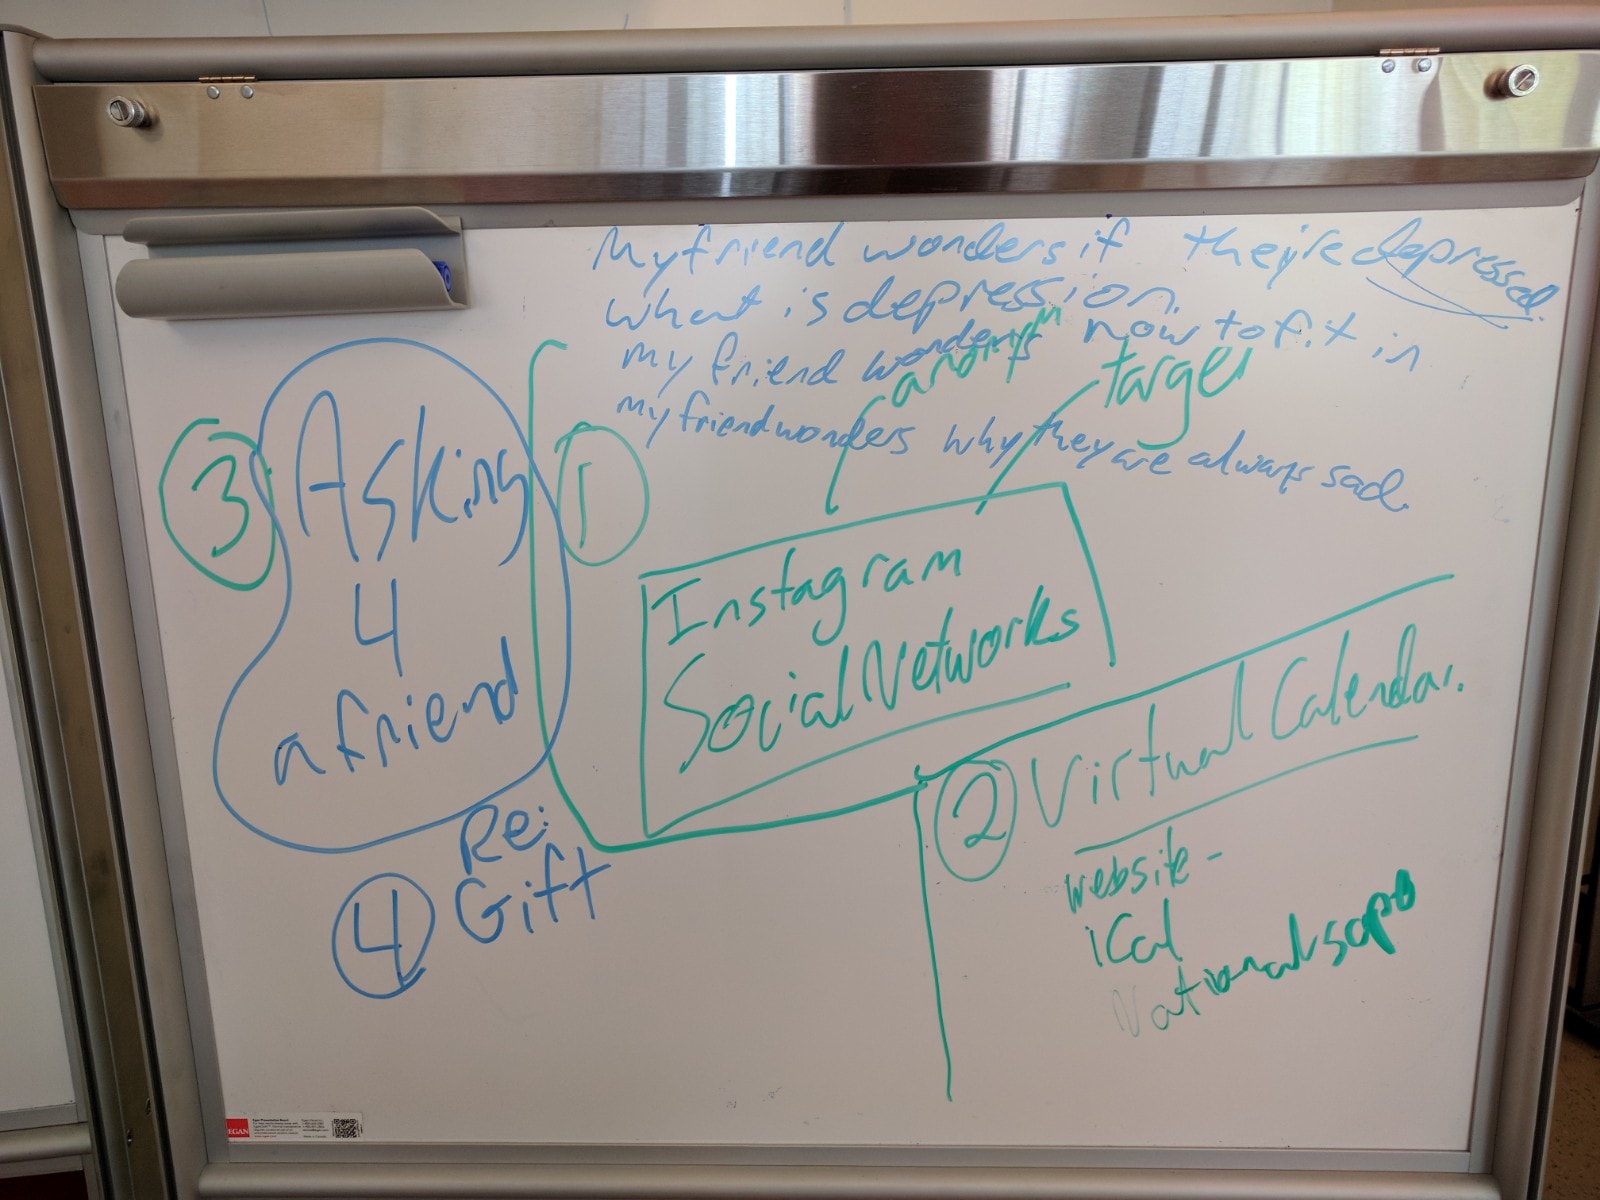 My friend wonders if they're depressed.
what is depression.
my friend wonders how to fit in
my friend wonders why they are always sad.
target
3
Asking
4
a friend
1
Instagram
Social Networks
2 Virtual Calendar.
website -
iCal
National
Re:
4 Gift
EGAN